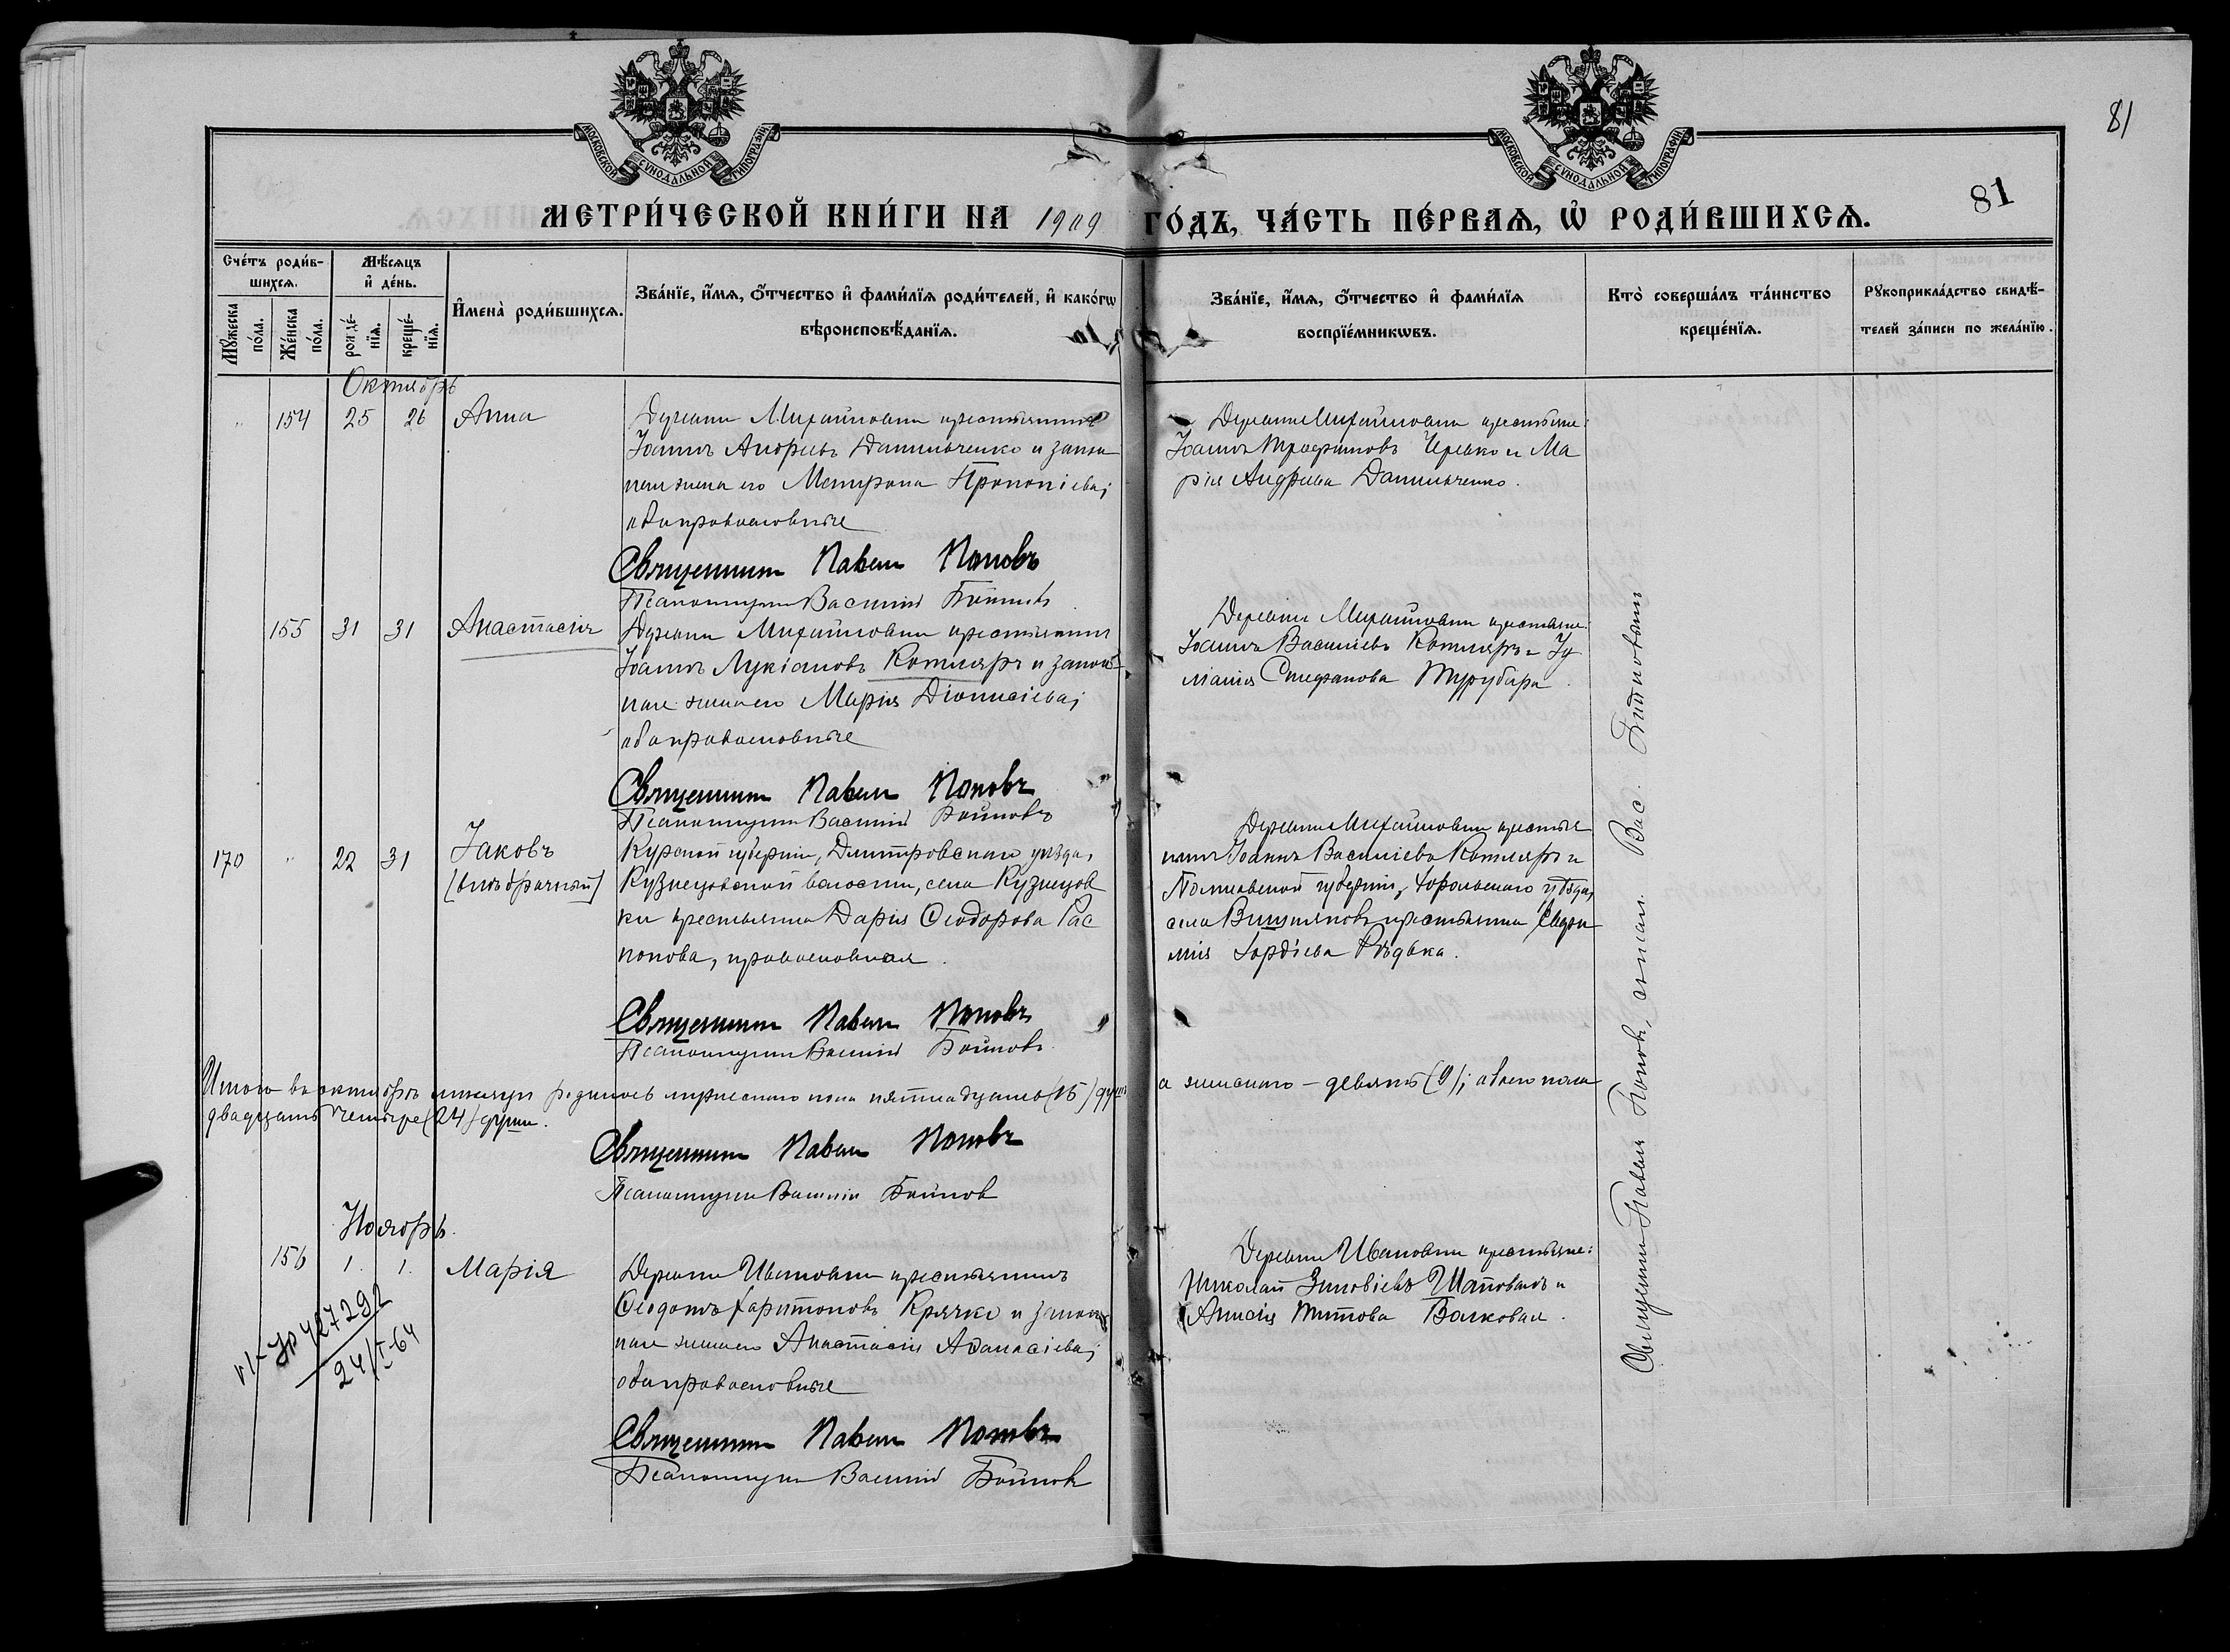 81
МОСКОВСКОЙ СѴНОДАЛЬНОЙ ТИПОГРАФІИ
МОСКОВСКОЙ СѴНОДАЛЬНОЙ ТИПОГРАФІИ
81
МЕТРИ́ЧЕСКОЙ КНИ́ГИ НА 1909 ГО́ДЪ, ЧА́СТЬ ПЕ́РВАѦ, Ѽ РОДИ́ВШИХСѦ.
Сче́тъ роди́в-
шихсѧ.
Мꙋ́жеска по́ла.
Же́нска по́ла.
Мѣ́сѧцъ
и҆ де́нь.
рожде́-нїѧ.
креще́-нїѧ.
И҆мена̀ роди́вшихсѧ.
Зва́нїе, и҆́мѧ, ѻ҆́тчество и҆ фами́лїѧ роди́телей, и҆ како́гѡ
вѣроисповѣ́данїѧ.
Зва́нїе, и҆́мѧ, ѻ҆́тчество и҆ фами́лїѧ
воспрїе́мникѡвъ.
Кто̀ соверша́лъ та́инство
креще́нїѧ.
Рꙋкоприкла́дство свидѣ́-
телей за́писи по жела́нїю.
Октябрь
154 25 26 Анна
Деревни Михайловки крестьянинъ
Іоаннъ Андреевъ Данильченко и закон
ная жена его Матрона Прокопіева;
оба православные
Священникъ Павелъ Поповъ
Псаломщикъ Василий Бойковъ
Деревни Михайловки крестьяне:
Іоаннъ Трофимовъ Черевко и Ма
рія Андреева Данильченко.
155 31 31 Анастасія
Деревни Михайловки крестьянинъ
Іоаннъ Лукіановъ Котляръ и закон
ная жена его Марія Діонисіева;
оба православные
Священникъ Павелъ Поповъ
Псаломщикъ Василий Бойковъ
Деревни Михайловки крестьяне:
Іоаннъ Василіевъ Котляръ и Іу
ліанія Стефанова Трубара.
170 " 22 31 Іаковъ
(внѣбрачный)
Курской губерніи, Дмитровскаго уѣзда,
Кузнецовской волости, села Кузнецов
ки крестьянка Дарія Ѳеодорова Рас
попова, православная.
Священникъ Павелъ Поповъ
Псаломщикъ Василий Бойковъ
Деревни Михайловки крестья
нинъ Іоаннъ Василіевъ Котляръ и
Полтавской губерніи, Хорольскаго уѣзда,
села Вишняковъ крестьянка Евдо
кія Гордіева Рѣдька.
Итого въ октябрѣ мѣсяцѣ родилось мужескаго пола пятнадцать (15) душъ
а женскаго – девять (9); обоего пола
двадцать четыре (24) души.
Священникъ Павелъ Поповъ
Псаломщикъ Василий Бойковъ
Ноябрь.
156 1. 1. Марія
Деревни Ивановки крестьянинъ
Ѳеодотъ Харитоновъ Крячко и закон
ная жена его Анастасія Аѳанасіева;
оба православные
Священникъ Павелъ Поповъ
Псаломщикъ Василий Бойковъ
Деревни Ивановки крестьяне:
Николай Зиновіевъ Шаповалъ и
Анисія Титова Волковая.
427292
24/I-64
Священникъ Павелъ Поповъ, съ псал. Вас. Бойковымъ